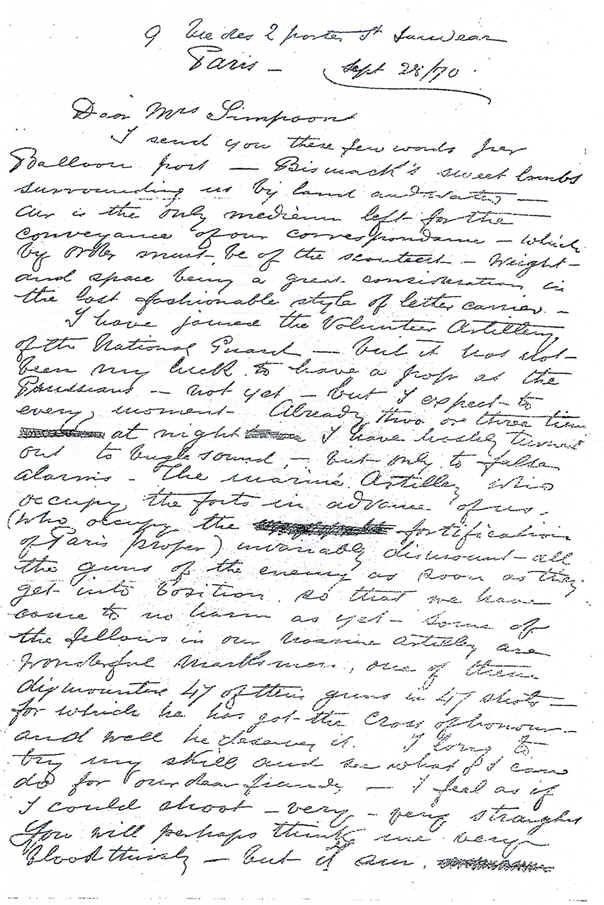 9 Rue des 2 portes St Sauveur
Paris — Sept 28/70.
Dear Mrs Simpson
I send you these few words per
Balloon post — Bismack's sweet lambs
surrounding us by land and water —
air is the only medium left for the
conveyance of our correspondance — which
by order must be of the scantest — weight —
and space being a great consideration in
the last fashionable style of letter carrier. —
I have joined the Volunteer Artillery
of the National Guard — but it has not
been my luck to have a pop at the
Prussians — not yet — but I expect to
every moment. Already two or three times
at night I have hastily turned
out to bugle sound, — but only to false
alarms — The marine Artillery who
occupy the forts in advance of us.
(who occupy the fortification
of Paris proper) invariably dismount all
the guns of the enemy as soon as they
get into position so that we have
come to no harm as yet — Some of
the fellows in our Marine Artillery are
wonderful marksmen, one of them
dismounted 47 of their guns in 47 shots —
for which he has got the Cross of honour —
and well he deserves it. I long to
try my skill and see what I can
do for our dear friends — I feel as if
I could shoot — very — very straight
You will perhaps think me very
bloodthirsty — but it